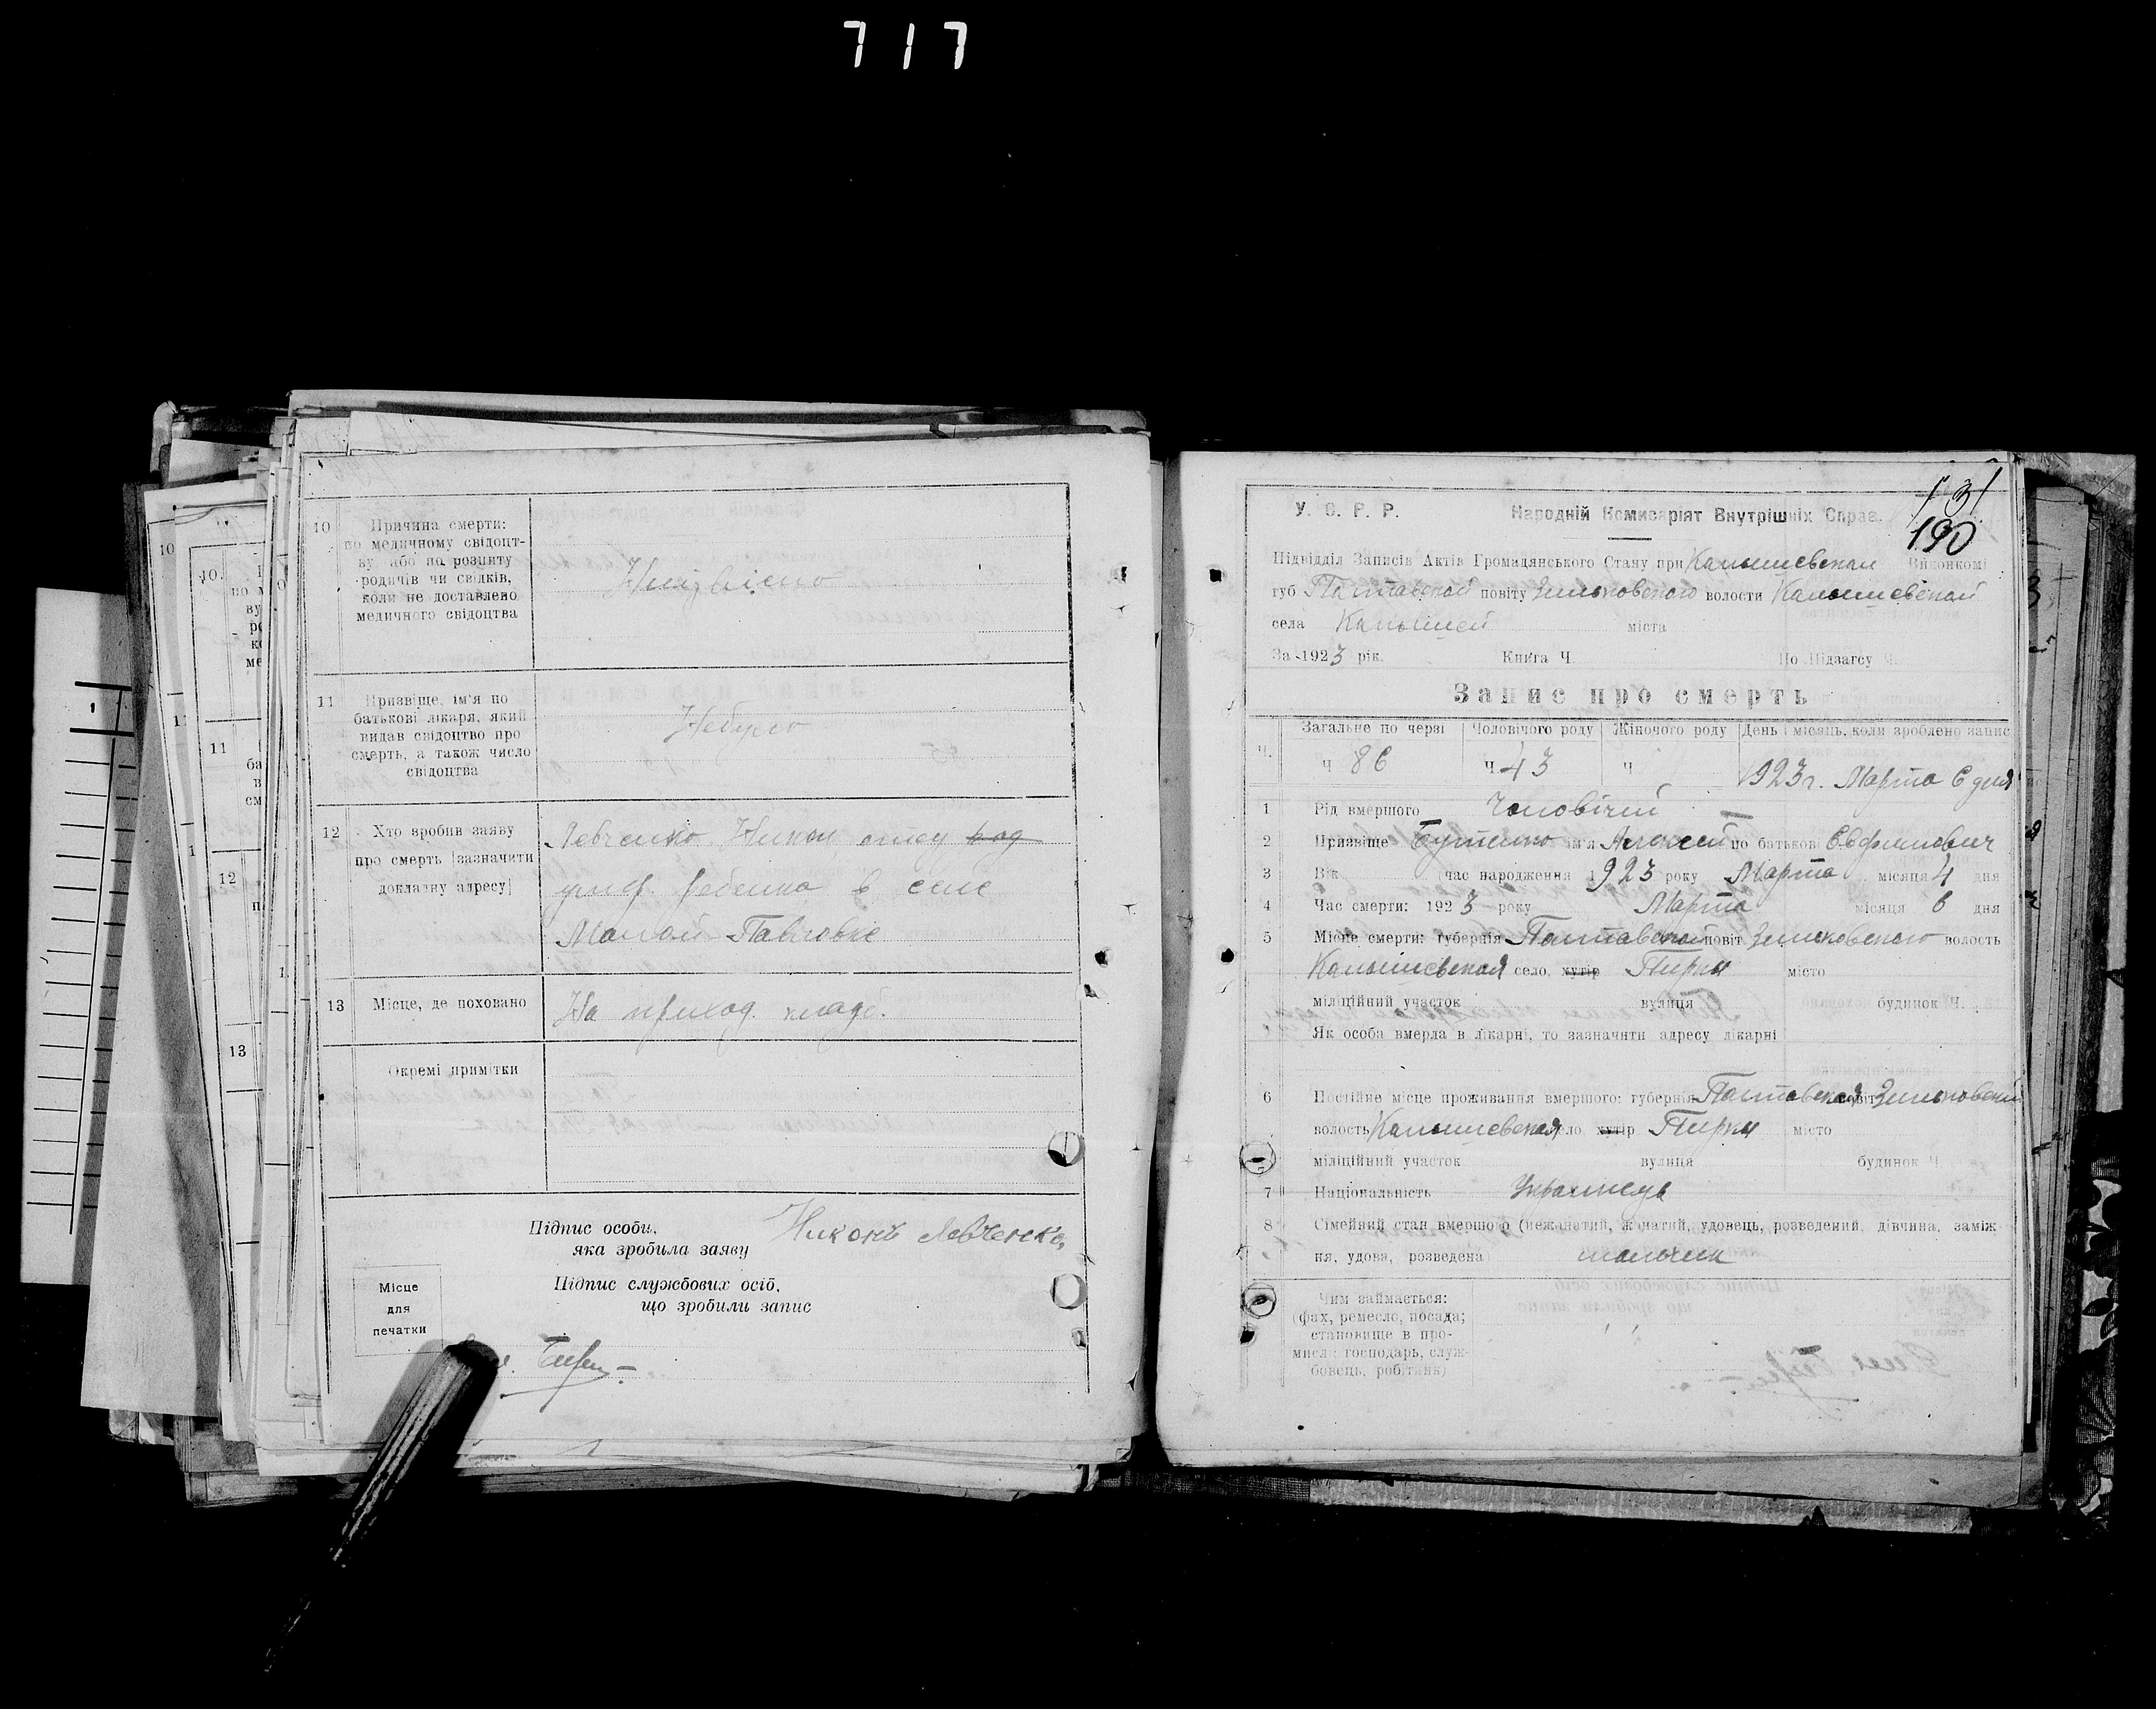 717
10
Причина смерти:
по медичному свідоцт-
ву або по розпиту
родичів чи свідків,
коли не доставлено
медичного свідоцтва
Неизвісно
11
Призвіще, ім'я по
батькові лікаря, який
видав свідоцтво про
смерть, а також число
свідоцтва
Небуло
12
Хто зробив заяву
про смерть [зазначити
докладну адресу]
Левченко Никон отец
ребенка в селе
Малой Павловке
13
Місце, де поховано
На приход. кладб.
Окремі примітки
Підпис особи,
яка зробила заяву
Никонъ Левченко
Підпис службових осіб,
що зробили запис
Місце
для
печатки
131
190
У. С. Р. Р. Народній Комисаріят Внутрішніх Справ.
Підвідділ Записів Актів Громадянського Стану при Камышевском Виконкомі
губ Полтавской повіту Зиньковского волости Камышевской
села Камышей міста
За 1923 рік. Книга Ч. По Підзагсу Ч.
Запис про смерть
Ч. Загальне по черзі Чоловічого роду Жіночого роду День і місяць, коли зроблено запис
Ч 86 Ч 43 Ч 1923 г. Марта 6 дня
1 Рід вмершого Чоловічий
2 Призвіще Бутенко ім'я Алексей по батькові Евфимович
3 Вік час народження 1923 року Марта місяця 4 дня
4 Час смерти: 1923 року Марта місяця 6 дня
5 Місце смерти: губернія Полтавской повіт Зиньковского волость
Камышевская село, хутір Пирки місто
міліційний участок вулиця будинок Ч.
Як особа вмерла в лікарні, то зазначити адресу лікарні
6 Постійне місце проживання вмершого: губернія Полтавская повіт Зиньковский
волость Камышевская село хутір Пирки місто
міліційний участок вулиця будинок Ч.
7 Національність Украинец
8 Сімейний стан вмершого (нежонатий, жонатий, удовець, розведений, дівчина, заміж-
ня, удова, розведена) мальчик
Чим займається:
(фах, ремесло, посада;
становище в про-
мислі: господарь, служ-
бовець, робітник)